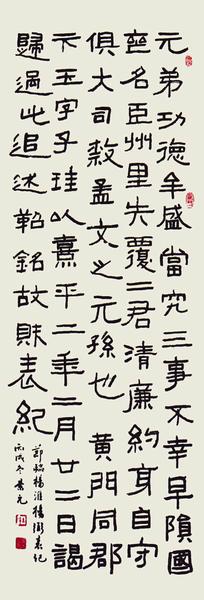 元弟功德牟盛當究三事不幸早隕國
喪名臣州里失覆二君清廉約身自守
俱大司隸孟文之元孫也 黄門同郡
卞玉字子珪以熹平二年二月廿二日謁
歸過此追述勒銘故財表紀
節臨楊淮楊弼表紀
丙戌冬